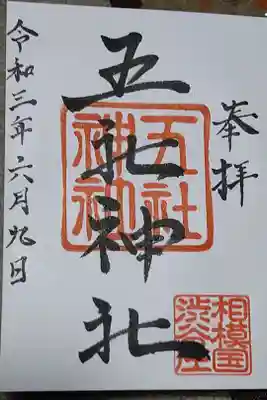 奉拝
五社神社
令和三年六月九日
五社
神社
相模国
渋谷庄